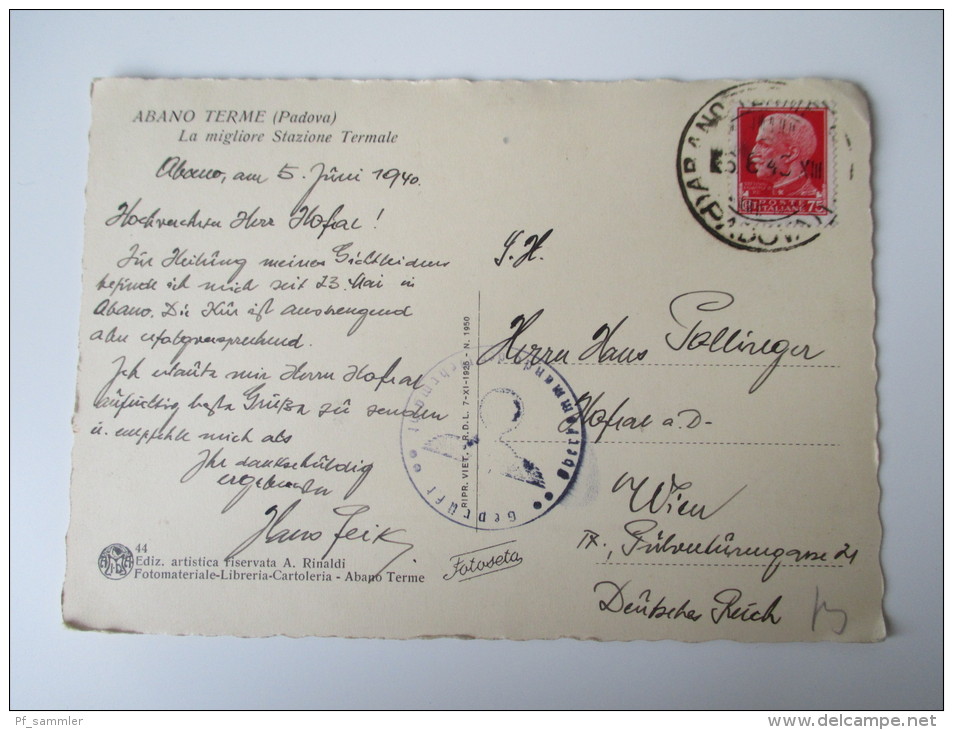 ABANO TERME (Padova)
La migliore Stazione Termale
Abano, am 5. Juni 1940.
Hochverehrter Herr Hofrat!
Zur Heilung meines Gichtleidens
befinde ich mich seit 23. Mai in
Abano. Die Kur ist anstrengend
aber erfolgversprechend.
Ich erlaube mir Herrn Hofrat
aufrichtig beste Grüße zu senden
u. empfehle mich als
Ihr dankschuldig
ergebenster
Hans
44
Ediz. artistica riservata A. Rinaldi
Fotomateriale-Libreria-Cartoleria - Abano Terme
Fotoseta
RIPR. VIET. - R.D.L. 7-XI-1925 - N. 1950
Oberkommando der Wehrmacht
Geprüft
ABANO
PADOVA
POSTE
ITALIANE 75
S. H.
Herrn Hans Pollinger
Hofrat a.D.
Wien
IX., 21
Deutsches Reich
Pf_sammler
www.delcampe.net